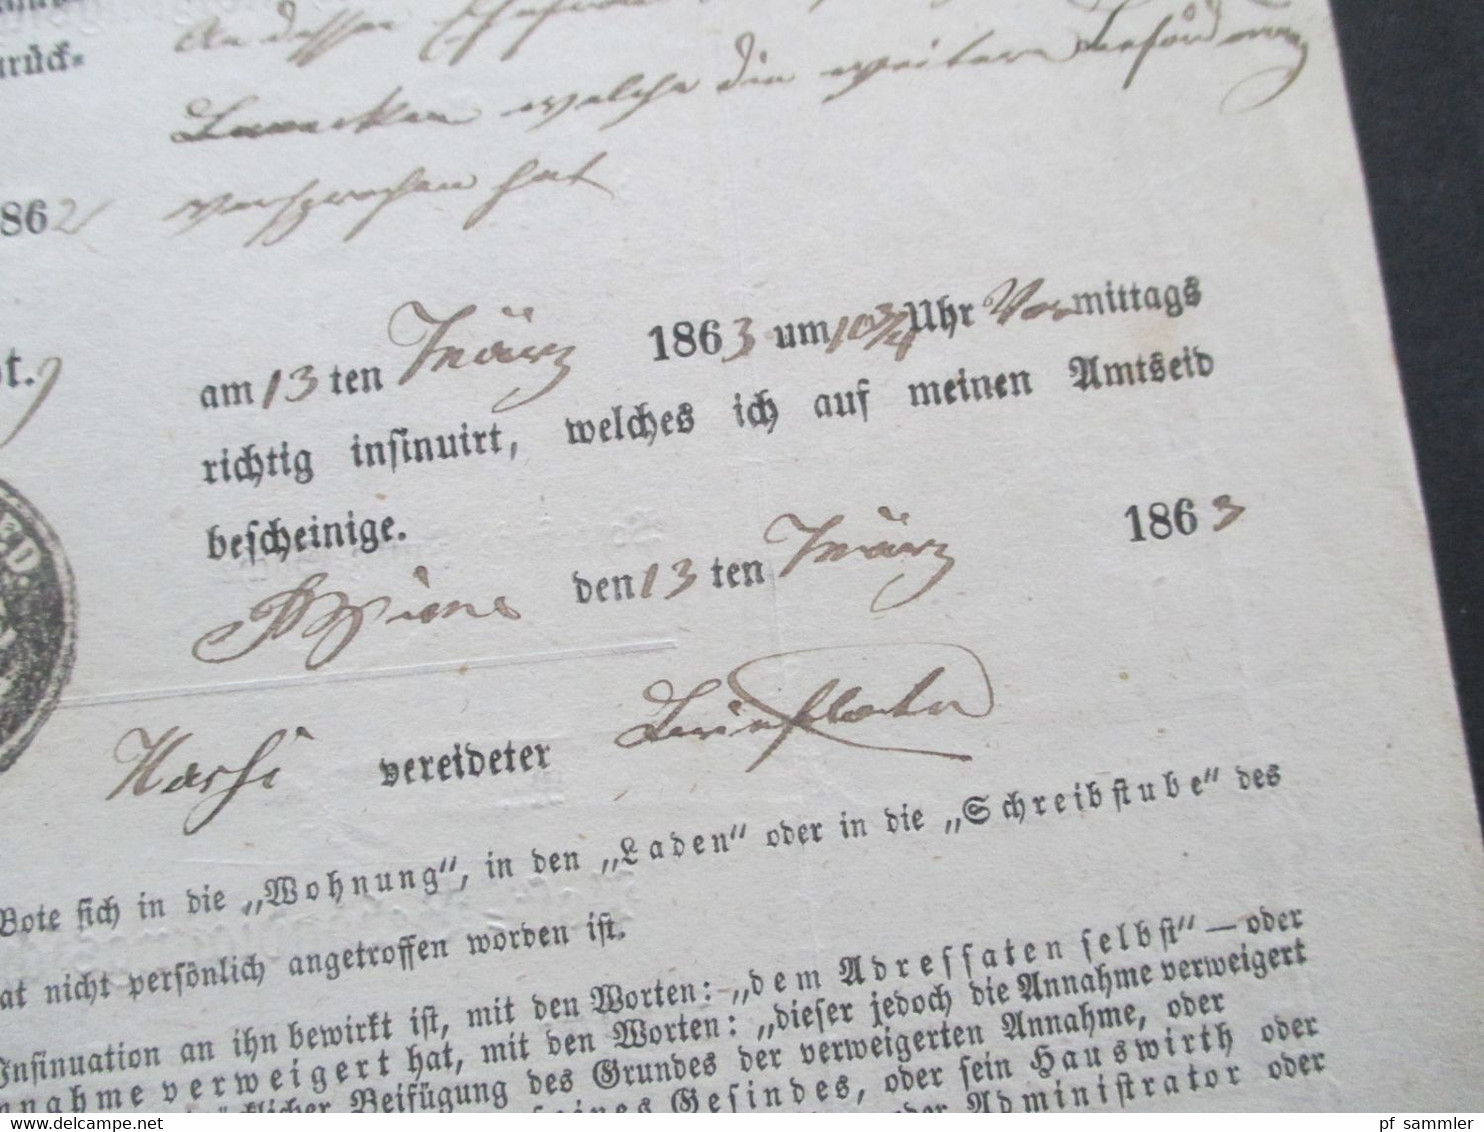 An dessen Ehefrau
urück-
welche die weitere Beförderung
1862
versprochen hat
am 13 ten März 1863 um 10 3/4 Uhr Vormittags
richtig insinuirt, welches ich auf meinen Amtseid
bescheinige.
den 13 ten März 1863
vereideter
Bote sich in die „Wohnung", in den „Laden" oder in die „Schreibstube" des
at nicht persönlich angetroffen worden ist.
Insinuation an ihn bewirkt ist, mit den Worten: „dem Adressaten selbst" — oder
nnahme verweigert hat, mit den Worten: „dieser jedoch die Annahme verweigert
klicher Beifügung des Grundes der verweigerten Annahme, oder
eines Gesindes, oder sein Hauswirth oder
oder Administrator oder
pf sammler